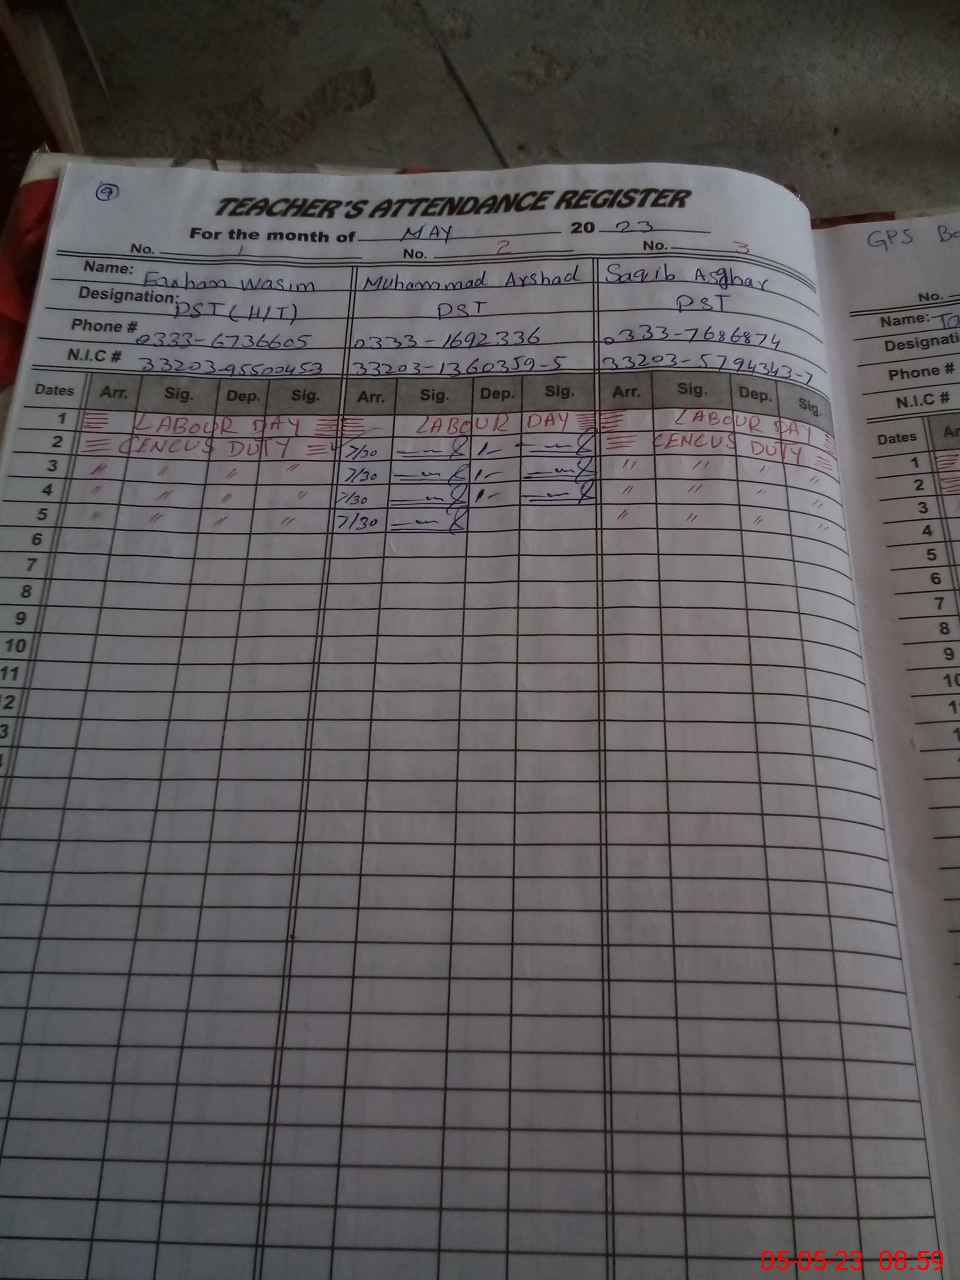 9
TEACHER'S ATTENDANCE REGISTER
For the month of MAY 20 23
No. 1 No. 2 No. 3
Name: Farham Wasim Muhammad Arshad Saqib Asghar
Designation: PST (H/T) PST PST
Phone # 0333-6736605 0333-1692336 0333-7686874
N.I.C # 33203-95500453 33203-1360359-5 33203-5794343-7
Dates Arr. Sig. Dep. Sig. Arr. Sig. Dep. Sig. Arr. Sig. Dep. Sig.
1 LABOUR DAY LABOUR DAY LABOUR DAY
2 CENCUS DUTY 7/30 1- CENCUS DUTY
3 " " " " 7/30 1- " " " "
4 " " " " 7/30 1- " " " "
5 " " " " 7/30 " " " "
6
7
8
9
10
11
12
3
GPS
No.
Name:
Designati
Phone #
N.I.C #
Dates Ar
1
2
3
4
5
6
7
8
9
10
1
05-05-23 08:59